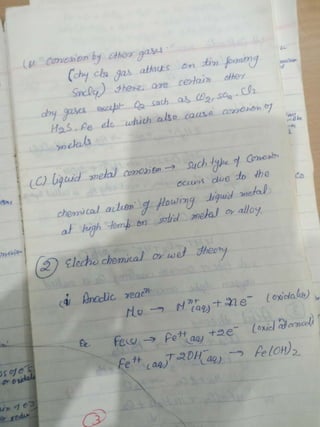 (ii) "Corrosion by other gases"
(dry Cl2 gas attacks on tin forming
SnCl4) there are certain other
dry gases except O2 such as CO2, SO2, Cl2
H2S, F2 etc which also cause corrosion of
metals
(C) Liquid metal corrosion → Such type of corrosion
occurs due to the
chemical action of flowing liquid metal
at high temp on solid metal or alloy.
(2) Electrochemical or wet theory
(i) Anodic reacn
Me → Mn+ (aq) + ne- (oxidation)
Ex Fe(s) → Fe++ (aq) + 2e-
Fe++ (aq) + 2OH- (aq) → Fe(OH)2
(3)